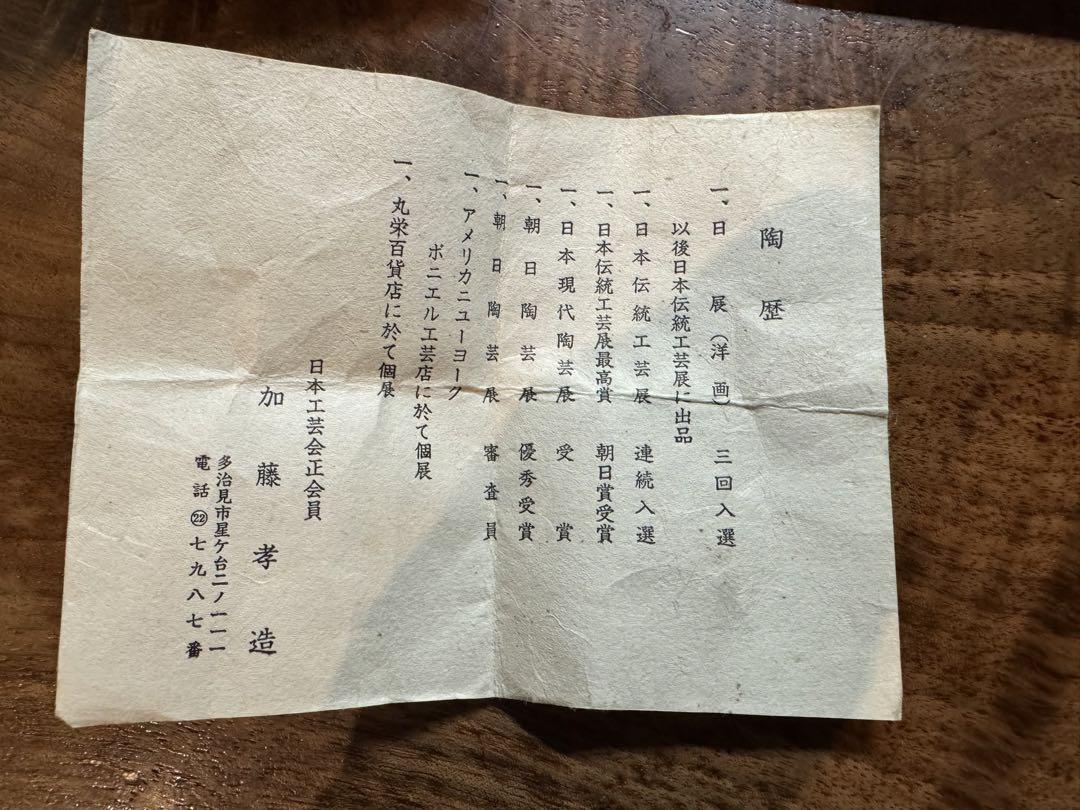 陶歴
一、日展（洋画）三回入選
以後日本伝統工芸展に出品
一、日本伝統工芸展 連続入選
一、日本伝統工芸展最高賞 朝日賞受賞
一、日本現代陶芸展 受賞
一、朝日陶芸展 優秀受賞
一、朝日陶芸展 審査員
一、アメリカニューヨーク
ボニエル工芸店に於て個展
一、丸栄百貨店に於て個展
日本工芸会正会員
加藤孝造
多治見市星ケ台二ノ一一一
電話㉒七九八七番